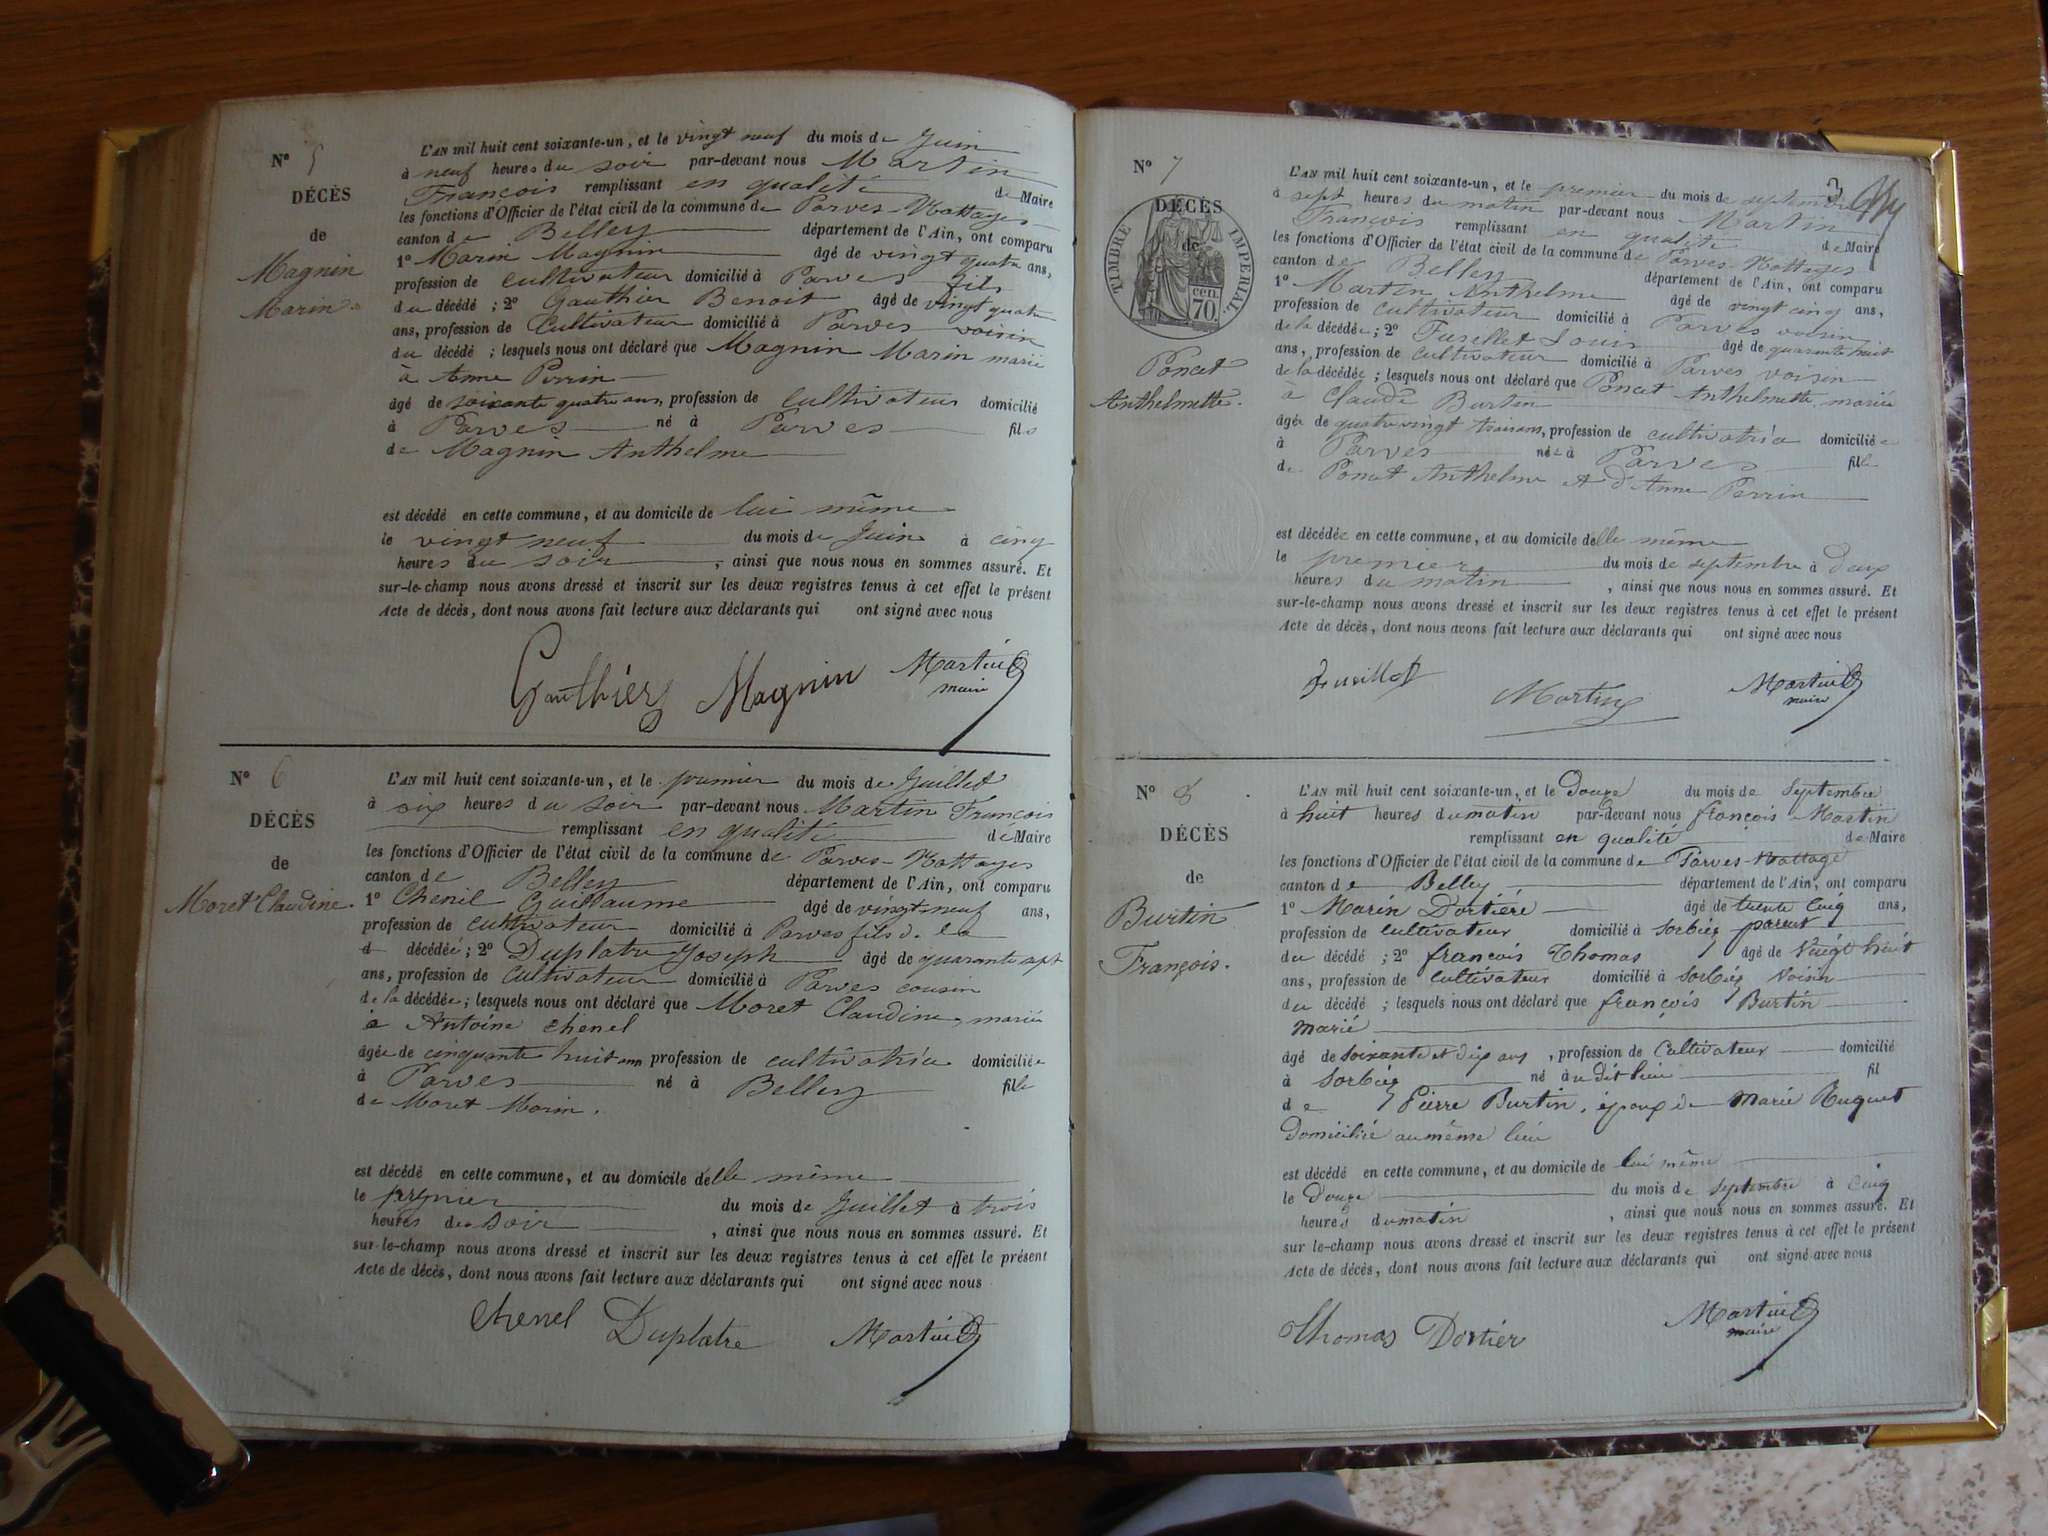 N° 5
DÉCÈS
de
Magnin
Marin
L'AN mil huit cent soixante-un, et le vingt neuf du mois de Juin
à neuf heures du soir par-devant nous Martin
François remplissant en qualité de Maire
les fonctions d'Officier de l'état civil de la commune de Parves-Nattages
canton de Belley département de l'Ain, ont comparu
1° Marin Magnin âgé de vingt quatre ans,
profession de cultivateur domicilié à Parves fils
du décédé ; 2° Gauthier Benoit âgé de vingt quatre
ans, profession de Cultivateur domicilié à Parves voisin
du décédé ; lesquels nous ont déclaré que Magnin Marin marié
à Anne Perrin
âgé de soixante quatre ans, profession de cultivateur domicilié
à Parves né à Parves fils
de Magnin Anthelme
est décédé en cette commune, et au domicile de lui même
le vingt neuf du mois de Juin à cinq
heures du soir , ainsi que nous nous en sommes assuré. Et
sur-le-champ nous avons dressé et inscrit sur les deux registres tenus à cet effet le présent
Acte de décès, dont nous avons fait lecture aux déclarants qui ont signé avec nous
Gauthier Magnin Martin
maire
N° 6
DÉCÈS
de
Moret Claudine.
L'AN mil huit cent soixante-un, et le premier du mois de Juillet
à six heures du soir par-devant nous Martin François
remplissant en qualité de Maire
les fonctions d'Officier de l'état civil de la commune de Parves-Nattages
canton de Belley département de l'Ain, ont comparu
1° Chenel Guillaume âgé de vingt neuf ans,
profession de cultivateur domicilié à Parves fils de la
d décédée ; 2° Duplatre Joseph âgé de quarante sept
ans, profession de Cultivateur domicilié à Parves cousin
de la décédée ; lesquels nous ont déclaré que Moret Claudine, mariée
à Antoine Chenel
âgée de cinquante huit ans profession de cultivatrice domiciliée
à Parves né à Belley fille
de Moret Marin.
est décédé en cette commune, et au domicile delle même
le premier du mois de Juillet à trois
heures du soir , ainsi que nous nous en sommes assuré. Et
sur-le-champ nous avons dressé et inscrit sur les deux registres tenus à cet effet le présent
Acte de décès, dont nous avons fait lecture aux déclarants qui ont signé avec nous
Chenel Duplatre Martin
3
N° 7
DÉCÈS
de
TIMBRE IMPERIAL.
70 cen.
Poncet
Anthelmette.
L'AN mil huit cent soixante-un, et le premier du mois de septembre
à sept heures du matin par-devant nous Martin
François remplissant en qualité de Maire
les fonctions d'Officier de l'état civil de la commune de Parves-Nattages
canton de Belley département de l'Ain, ont comparu
1° Martin Anthelme âgé de vingt cinq ans,
profession de cultivateur domicilié à Parves voisin
de la décédée ; 2° Fusillet Louis âgé de quarante huit
ans, profession de cultivateur domicilié à Parves voisin
de la décédée ; lesquels nous ont déclaré que Poncet Anthelmette, mariée
à Claude Burtin
âgée de quatre vingt trois ans, profession de cultivatrice domiciliée
à Parves née à Parves fille
de Poncet Anthelme et d'Anne Perrin
est décédée en cette commune, et au domicile delle même
le premier du mois de septembre à deux
heures du matin , ainsi que nous nous en sommes assuré. Et
sur-le-champ nous avons dressé et inscrit sur les deux registres tenus à cet effet le présent
Acte de décès, dont nous avons fait lecture aux déclarants qui ont signé avec nous
Martin Martin
maire
N° 8
DÉCÈS
de
Burtin
François.
L'AN mil huit cent soixante-un, et le Douze du mois de Septembre
à huit heures du matin par-devant nous françois Martin
remplissant en qualité de Maire
les fonctions d'Officier de l'état civil de la commune de Parves-Nattage
canton de Belley département de l'Ain, ont comparu
1° Marin Dortiére âgé de trente Cinq ans,
profession de cultivateur domicilié à Sorbiéz parent
du décédé ; 2° françois Thomas âgé de Vingt huit
ans, profession de Cultivateur domicilié à Sorbiéz Voisin
du décédé ; lesquels nous ont déclaré que françois Burtin
marié
âgé de soixante et dix ans , profession de Cultivateur domicilié
à Sorbiéz né au dit lieu fil
de Pierre Burtin, époux de Marie Huguet
Domicilié au même lieu
est décédé en cette commune, et au domicile de lui même
le Douze du mois de Septembre à Cinq
heures du matin , ainsi que nous nous en sommes assuré. Et
sur le-champ nous avons dressé et inscrit sur les deux registres tenus à cet effet le présent
Acte de décès, dont nous avons fait lecture aux déclarants qui ont signé avec nous
Thomas Dortier Martin
maire